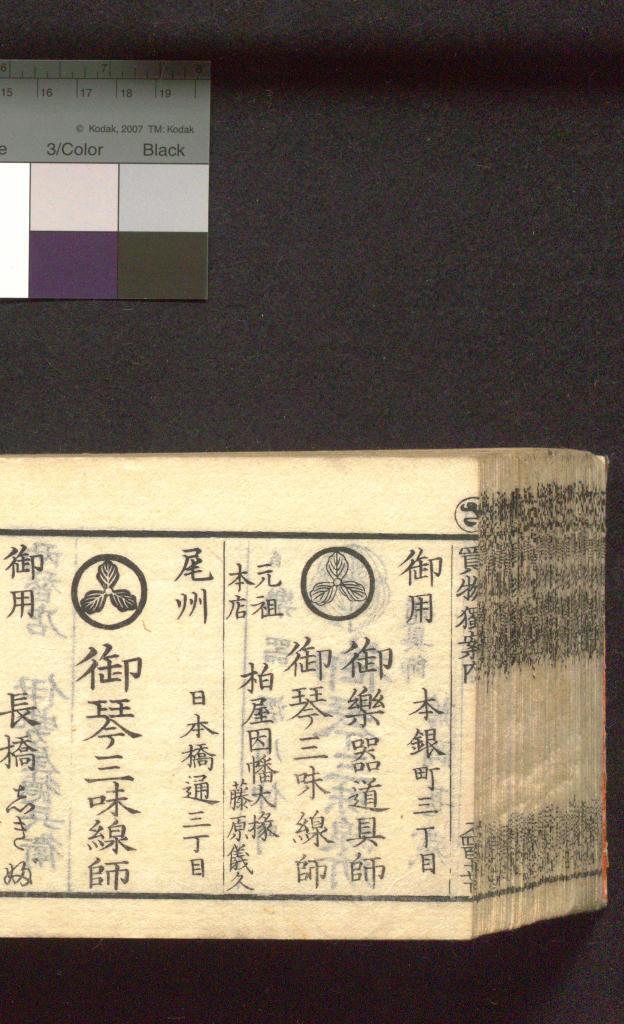 6 7 8
15 16 17 18 19
© Kodak, 2007 TM: Kodak
3/Color Black
買物獨案内
御用 本銀町三丁目
御樂器道具師
御琴三味線師
元祖
本店
柏屋因幡大掾
藤原儀久
尾州 日本橋通三丁目
御琴三味線師
御用 長橋